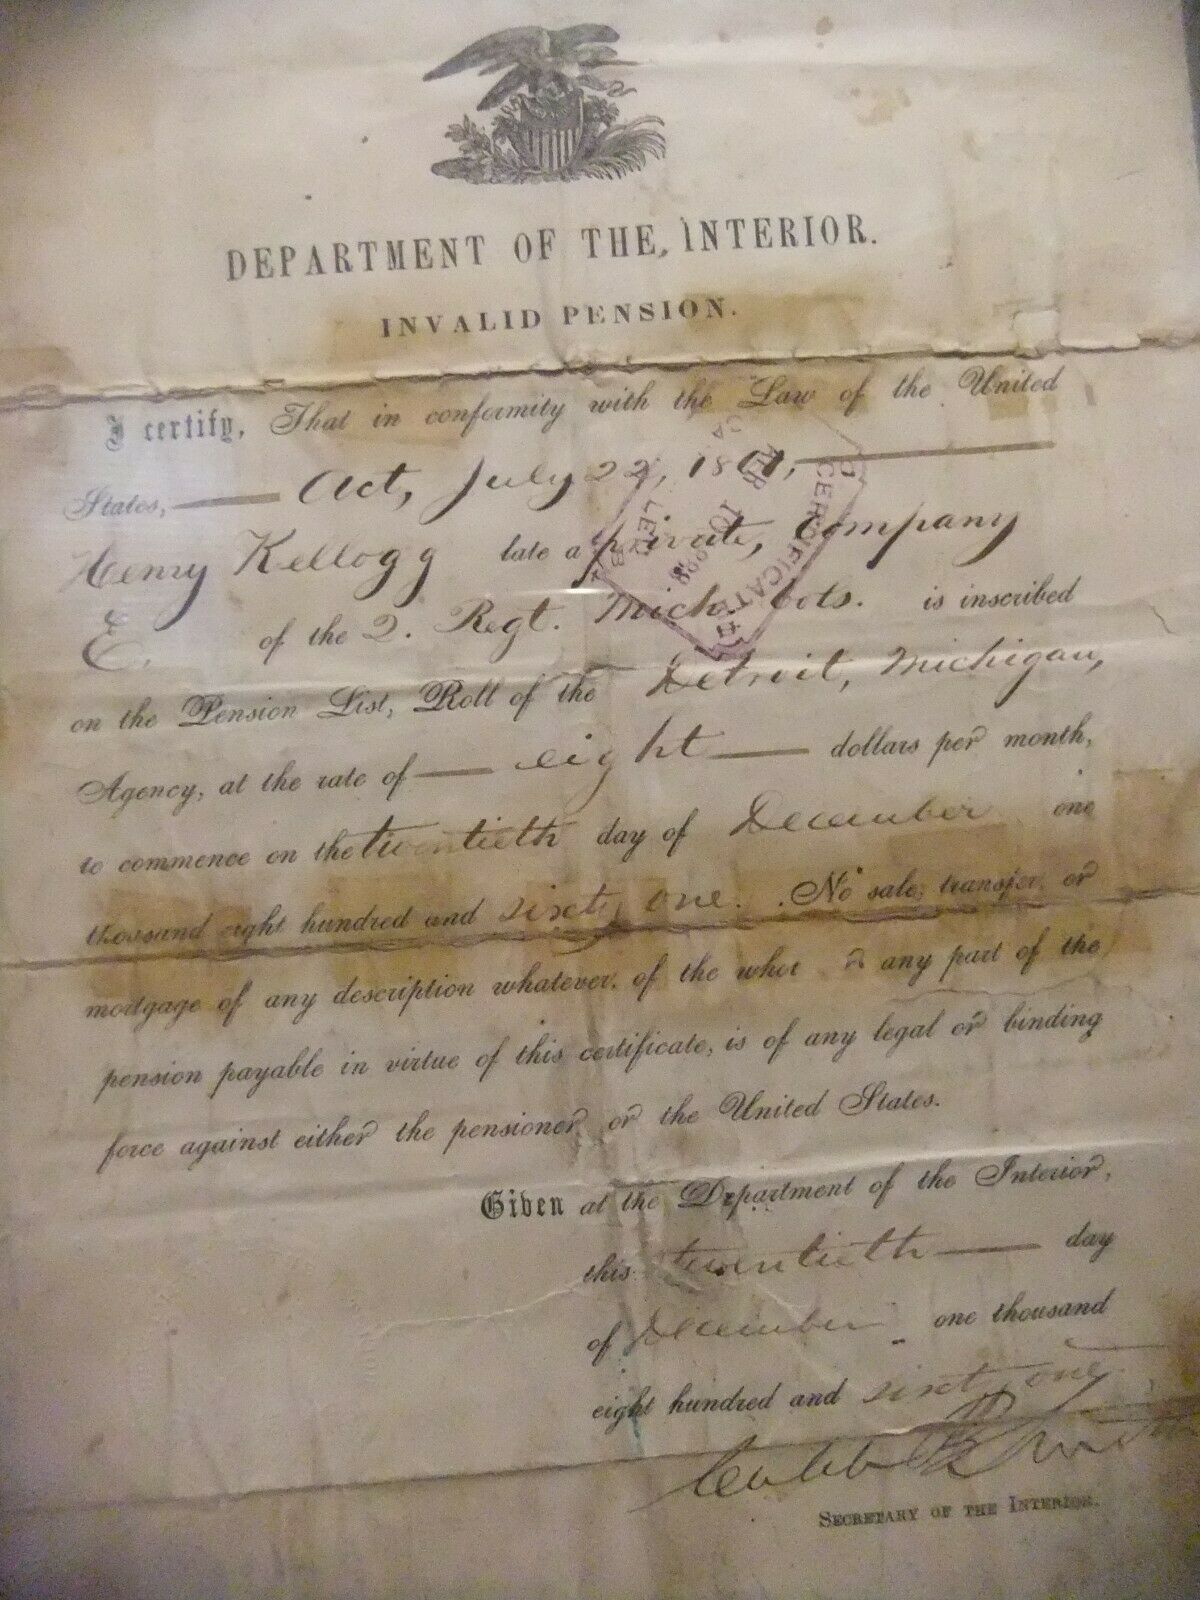 DEPARTMENT OF THE INTERIOR.
INVALID PENSION.
I certify, That in conformity with the Law of the United
States, Act, July 22, 1861,
Henry Kellogg late a private, Company
E. of the 2. Regt. Mich. Vols. is inscribed
on the Pension List, Roll of the Detroit, Michigan,
Agency, at the rate of eight dollars per month,
to commence on the twentieth day of December one
thousand eight hundred and sixty one. No sale, transfer or
mortgage of any description whatever, of the whole or any part of the
pension payable in virtue of this certificate, is of any legal or binding
force against either the pensioner or the United States.
Given at the Department of the Interior,
this twentieth day
of December one thousand
eight hundred and sixty one
Caleb B Smith
SECRETARY OF THE INTERIOR.
CERTIFICATE
FEB 10